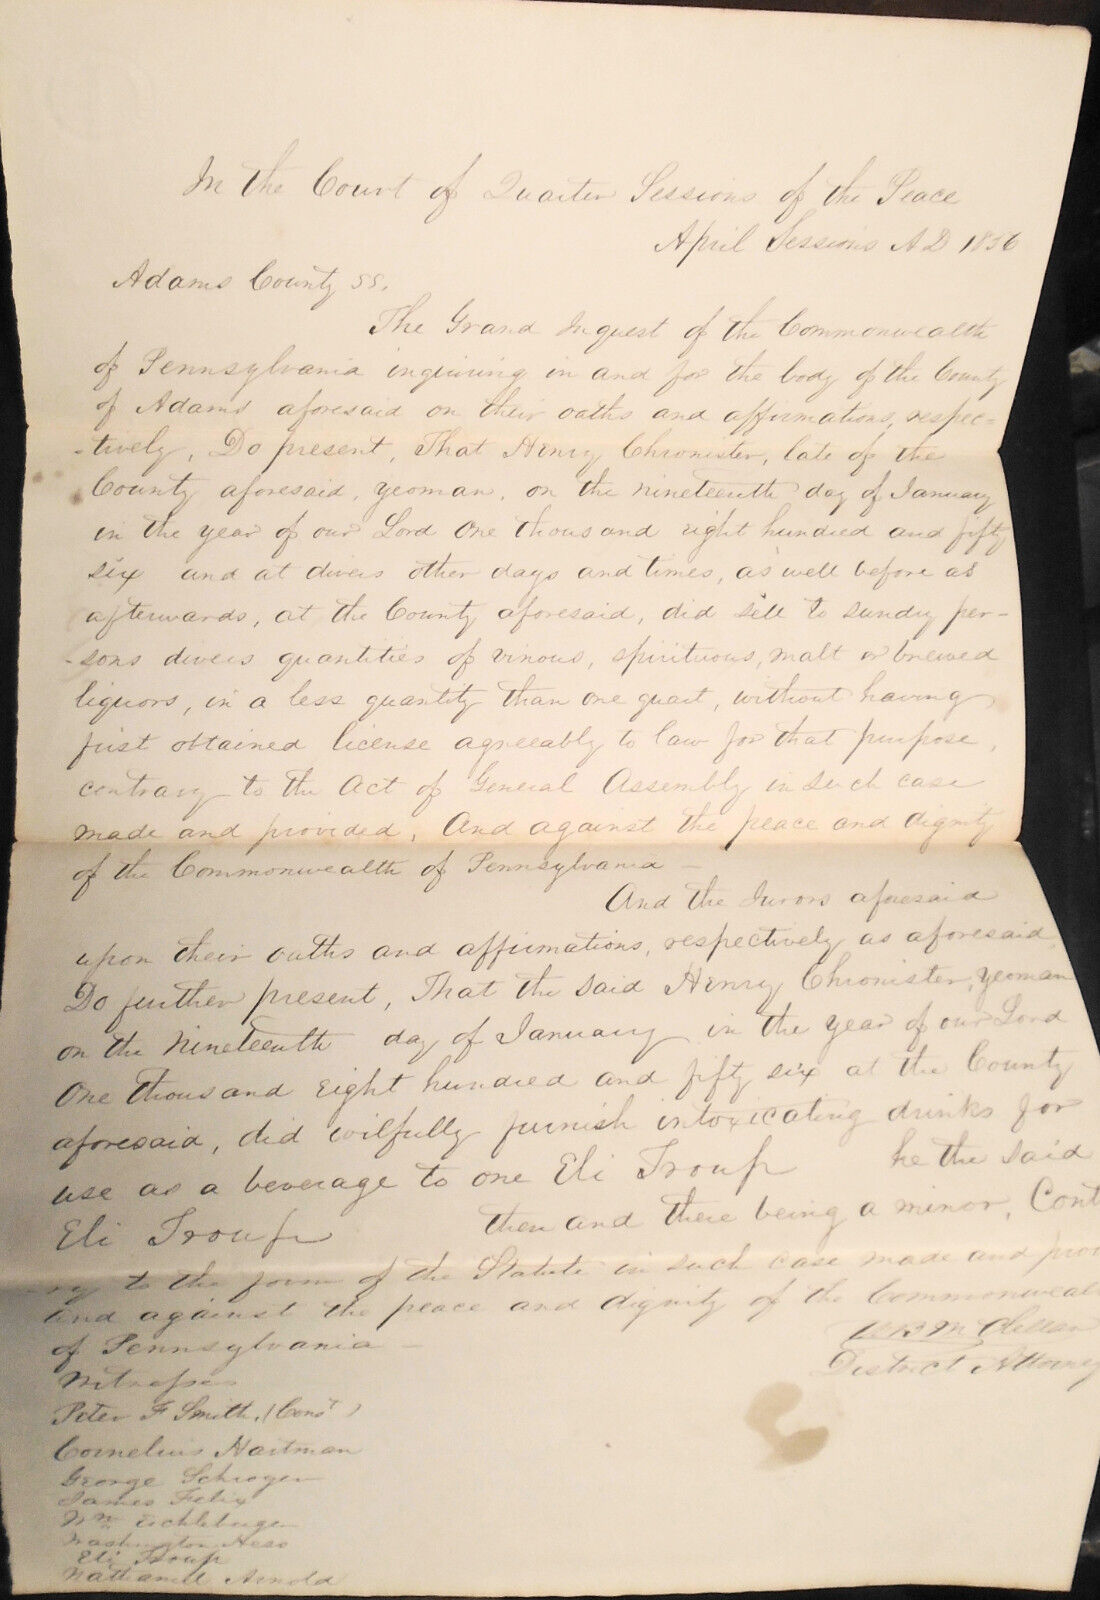 In the Court of Quarter Sessions of the Peace
April Sessions A D 1856
Adams County ss.
The Grand Inquest of the Commonwealth
of Pennsylvania inquiring in and for the body of the County
of Adams aforesaid on their oaths and affirmations, respec-
-tively, Do present, That Henry Chronister, late of the
County aforesaid, yeoman, on the nineteenth day of January
in the year of our Lord One thousand eight hundred and fifty
six and at divers other days and times, as well before as
afterwards, at the County aforesaid, did sell to sundry per-
-sons divers quantities of vinous, spirituous, malt or brewed
liquors, in a less quantity than one quart, without having
first obtained license agreeably to law for that purpose,
contrary to the Act of General Assembly in such case
made and provided, And against the peace and dignity
of the Commonwealth of Pennsylvania –
And the Jurors aforesaid
upon their oaths and affirmations, respectively as aforesaid,
Do further present, That the said Henry Chronister, yeoman
on the Nineteenth day of January in the year of our Lord
One thousand Eight hundred and fifty six at the County
aforesaid, did wilfully furnish intoxicating drinks for
use as a beverage to one Eli Troup he the said
Eli Troup then and there being a minor, Cont
ry to the form of the Statute in such case made and prov
and against the peace and dignity of the Commonweal
of Pennsylvania –
W B McClellan
District Attorney
Witnesses
Peter F Smith, (Const)
Cornelius Hartman
George Schroger
James Felix
Wm Eichleberger
Washington Hess
Eli Troup
Nathaniel Arnold